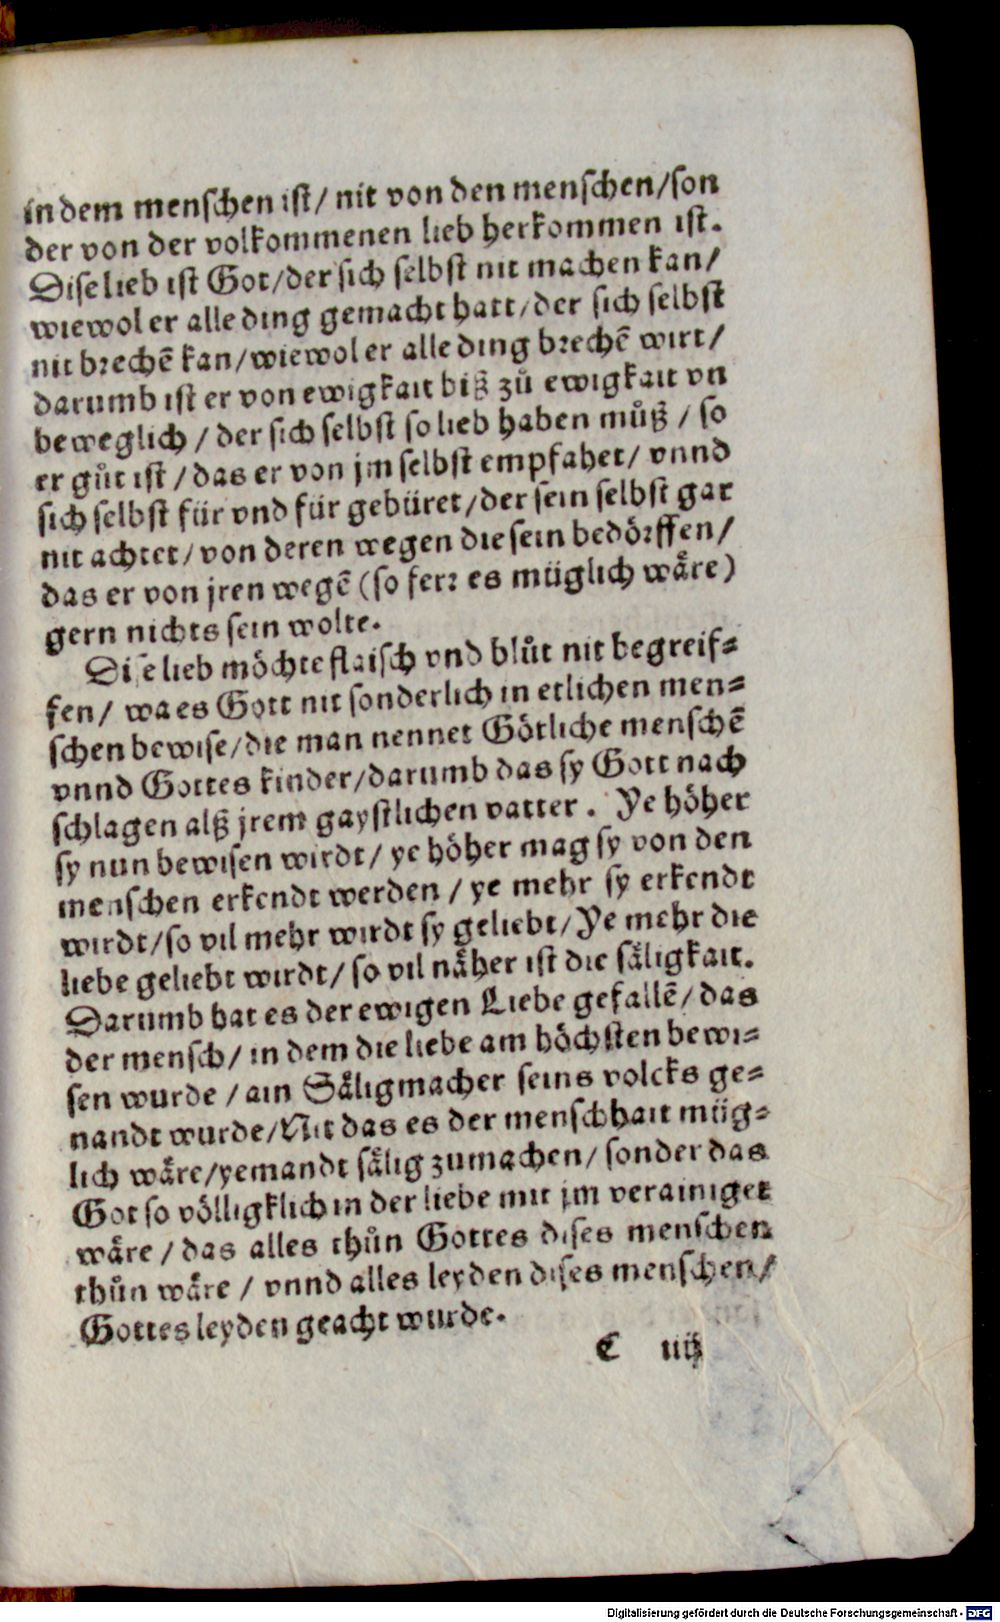 in dem menschen ist/ nit von den menschen/son
der von der volkommenen lieb herkommen ist.
Dise lieb ist Got/der sich selbst nit machen kan/
wiewol er alle ding gemacht hatt/der sich selbst
nit brechē kan/wiewol er alle ding brechē wirt/
darumb ist er von ewigkait biß zů ewigkait vn
beweglich / der sich selbst so lieb haben můß / so
er gůt ist / das er von jm selbst empfahet/ vnnd
sich selbst für vnd für gebüret/der sein selbst gar
nit achtet/von deren wegen die sein bedörffen/
das er von jren wegē (so ferr es müglich wåre)
gern nichts sein wolte.
Dise lieb möchte flaisch vnd blůt nit begreif-
fen/ wa es Gott nit sonderlich in etlichen men-
schen bewise/die man nennet Götliche menschē
vnnd Gottes kinder/darumb das sy Gott nach
schlagen alß jrem gaystlichen vatter. Ye höher
sy nun bewisen wirdt/ ye höher mag sy von den
menschen erkendt werden / ye mehr sy erkendt
wirdt/so vil mehr wirdt sy geliebt/Ye mehr die
liebe geliebt wirdt/ so vil nåher ist die såligkait.
Darumb hat es der ewigen Liebe gefallē/ das
der mensch/ in dem die liebe am höchsten bewi-
sen wurde / ain Såligmacher seins volcks ge-
nandt wurde/Nit das es der menschhait müg-
lich wåre/yemandt sålig zumachen/ sonder das
Got so völligklich in der liebe mit jm verainiget
wåre / das alles thůn Gottes dises menschen
thůn wåre / vnnd alles leyden dises menschen/
Gottes leyden geacht wurde.
C iiij
Digitalisierung gefördert durch die Deutsche Forschungsgemeinschaft - DFG